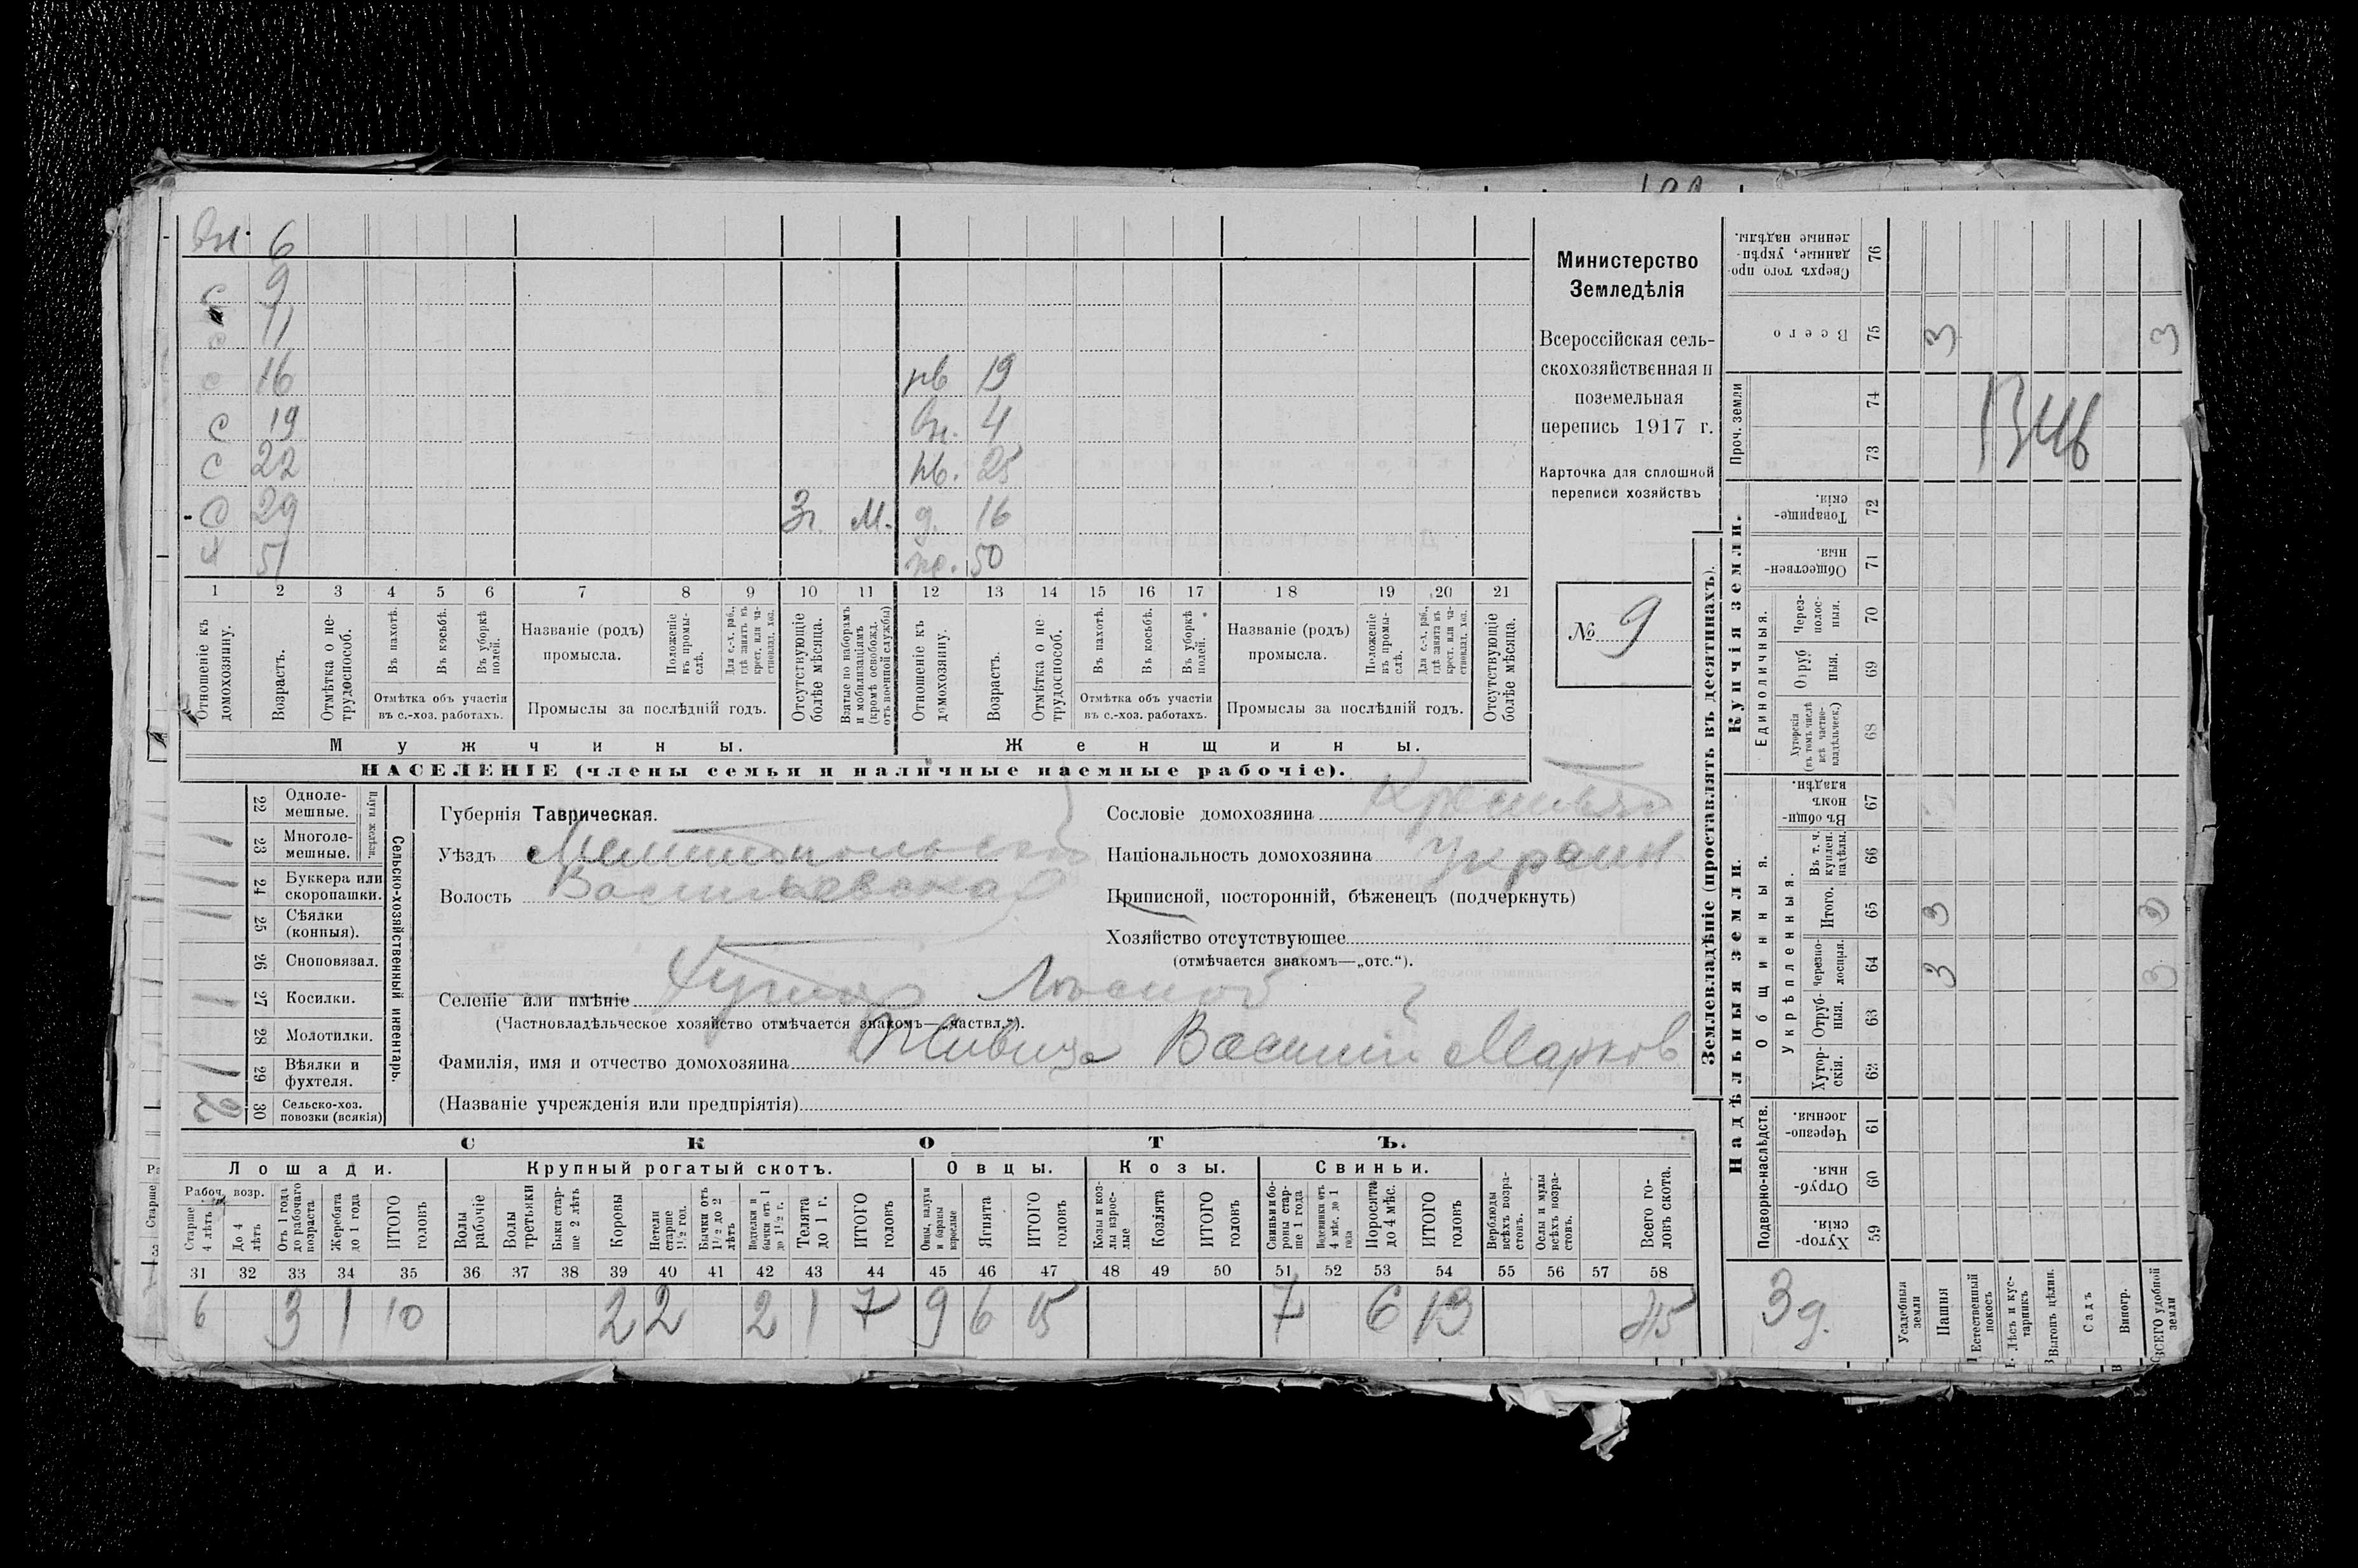 вн. 6
с 9
с 11
с 16 нв 19
с 19 вн. 4
с 22 нв. 25
с 29 3г. М. д. 16
х 51 же. 50
1 2 3 4 5 6 7 8 9 10 11 12 13 14 15 16 17 18 19 20 21
Отношеніе къ домохозяину.
Возрастъ.
Отмѣтка о нетрудоспособ.
Въ пахотѣ.
Въ косьбѣ.
Въ уборкѣ полей.
Отмѣтка объ участіи
въ с.-хоз. работахъ.
Названіе (родъ)
промысла.
Положеніе въ промыслѣ.
Для с.-х. раб., гдѣ занятъ въ крест. или частновлад. хоз.
Промыслы за послѣдній годъ.
Отсутствующіе болѣе мѣсяца.
Взятые по наборамъ и мобилизаціямъ (кромѣ освобожд. отъ военной службы)
Отношеніе къ домохозяину.
Возрастъ.
Отмѣтка о нетрудоспособ.
Въ пахотѣ.
Въ косьбѣ.
Въ уборкѣ полей.
Отмѣтка объ участіи
въ с.-хоз. работахъ.
Названіе (родъ)
промысла.
Положеніе въ промыслѣ.
Для с.-х. раб., гдѣ занята въ крест. или частновлад. хоз.
Промыслы за послѣдній годъ.
Отсутствующіе болѣе мѣсяца.
Мужчины. Женщины.
НАСЕЛЕНІЕ (члены семьи и наличные наемные рабочіе).
Министерство
Земледѣлія
Всероссійская сель-
скохозяйственная и
поземельная
перепись 1917 г.
Карточка для сплошной
переписи хозяйствъ
№ 9
22 Одноле-
мешные.
Плуги желѣзн.
23 Многоле-
мешные. 1
24 Буккера или
скоропашки. 1
25 Сѣялки
(конныя). 1
26 Сноповязал.
27 Косилки. 1
28 Молотилки.
29 Вѣялки и
фухтеля. 1
30 Сельско-хоз.
повозки (всякія) 2
Сельско-хозяйственный инвентарь.
Губернія Таврическая.
Уѣздъ Мелитопольскій
Волость Васильевская
Селеніе или имѣніе Хуторъ
(Частновладѣльческое хозяйство отмѣчается знакомъ—„частвл.“).
Фамилія, имя и отчество домохозяина Живица Василій Марков
(Названіе учрежденія или предпріятія)
Сословіе домохозяина Крестьян
Національность домохозяина Украин
Приписной, посторонній, бѣженецъ (подчеркнуть)
Хозяйство отсутствующее
(отмѣчается знакомъ—„отс.“).
СКОТЪ.
Лошади. Крупный рогатый скотъ. Овцы. Козы. Свиньи.
Рабоч. возр.
Старше 4 лѣтъ
До 4 лѣтъ
Отъ 1 года до рабочаго возраста
Жеребята до 1 года
ИТОГО головъ
Волы рабочіе
Волы третьяки
Быки старше 2 лѣтъ
Коровы
Нетели старше 1 1/2 год.
Бычки отъ 1 1/2 до 2 лѣтъ
Подтелки и бычки отъ 1 до 1 1/2 г.
Телята до 1 г.
ИТОГО головъ
Овцы, валухи и бараны взрослые
Ягнята
ИТОГО головъ
Козы и козлы взрослые
Козлята
ИТОГО головъ
Свиньи и боровы старше 1 года
Подсвинки отъ 4 мѣс. до 1 года
Поросята до 4 мѣс.
ИТОГО головъ
Верблюды всѣхъ возрастовъ.
Ослы и мулы всѣхъ возрастовъ.
Всего головъ скота.
31 32 33 34 35 36 37 38 39 40 41 42 43 44 45 46 47 48 49 50 51 52 53 54 55 56 57 58
6 3 1 10 2 2 2 1 7 9 6 15 7 6 13 45
Землевладѣніе (проставлять въ десятинахъ).
Надѣльныя земли. Купчія земли.
Сверхъ того проданные, укрѣпленные надѣлы. 76
Всего 75 3 3
Проч. земли 74
73
Товарищескія. 72
Общественныя. 71
Единоличныя.
Черезполосныя. 70
Отрубныя. 69
Хуторскія (въ томъ числѣ всѣ частновладѣльческ.) 68
Общинныя.
Въ общинномъ владѣн. 67
Укрѣпленныя.
Въ т. ч. куплен. надѣлы. 66
Итого. 65 3 3
Черезполосныя. 64 3 3
Отрубныя. 63
Хуторскія. 62
Подворно-наслѣдств.
Черезполосныя. 61
Отрубныя. 60
Хуторскія. 59
3 д.
Усадебныя земли
Пашня
Естественный покосъ
Лѣсъ и кустарникъ
Выгонъ цѣлин.
Садъ
Виногр.
ВСЕГО удобной земли